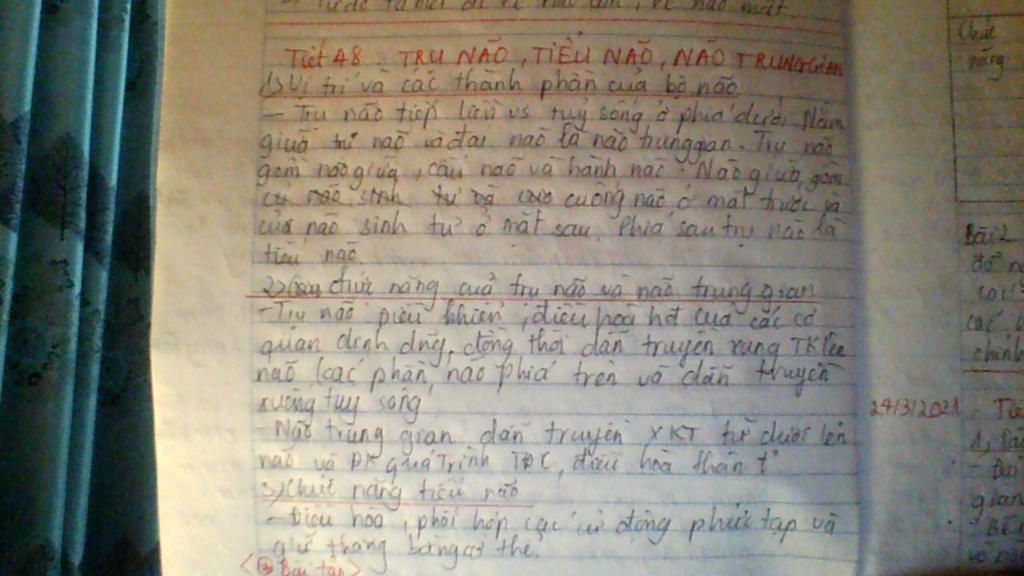 Tiết 48 : TRỤ NÃO, TIỂU NÃO, NÃO TRUNG GIAN
1) Vị trí và các thành phần của bộ não
- Trụ não tiếp liền vs tuỷ sống ở phía dưới. Nằm
giữa trụ não và đại não là não trung gian. Trụ não
gồm não giữa, cầu não và hành não. Não giữa gồm
cuống não ở mặt trước và
củ não sinh tư ở mặt sau. Phía sau trụ não là
tiểu não
2) chức năng của trụ não và não trung gian
- Trụ não điều khiển, điều hoà hđ của các cơ
quan dinh dưỡng, đồng thời dẫn truyền xung TK lên
não (các phần não phía trên và dẫn truyền
xuống tuỷ sống
- Não trung gian dẫn truyền XKT từ dưới lên
não và ĐK quá trình TĐC, điều hoà thân t°
3) Chức năng tiểu não
- Điều hoà, phối hợp các cử động phức tạp và
giữ thăng bằng cơ thể.
Bài tập
Chức
năng
Bài 2
các
chính
24/3/2021